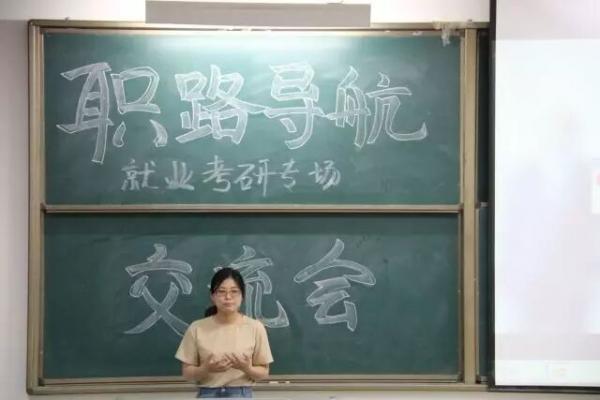 职路导航
就业考研专场
交流会